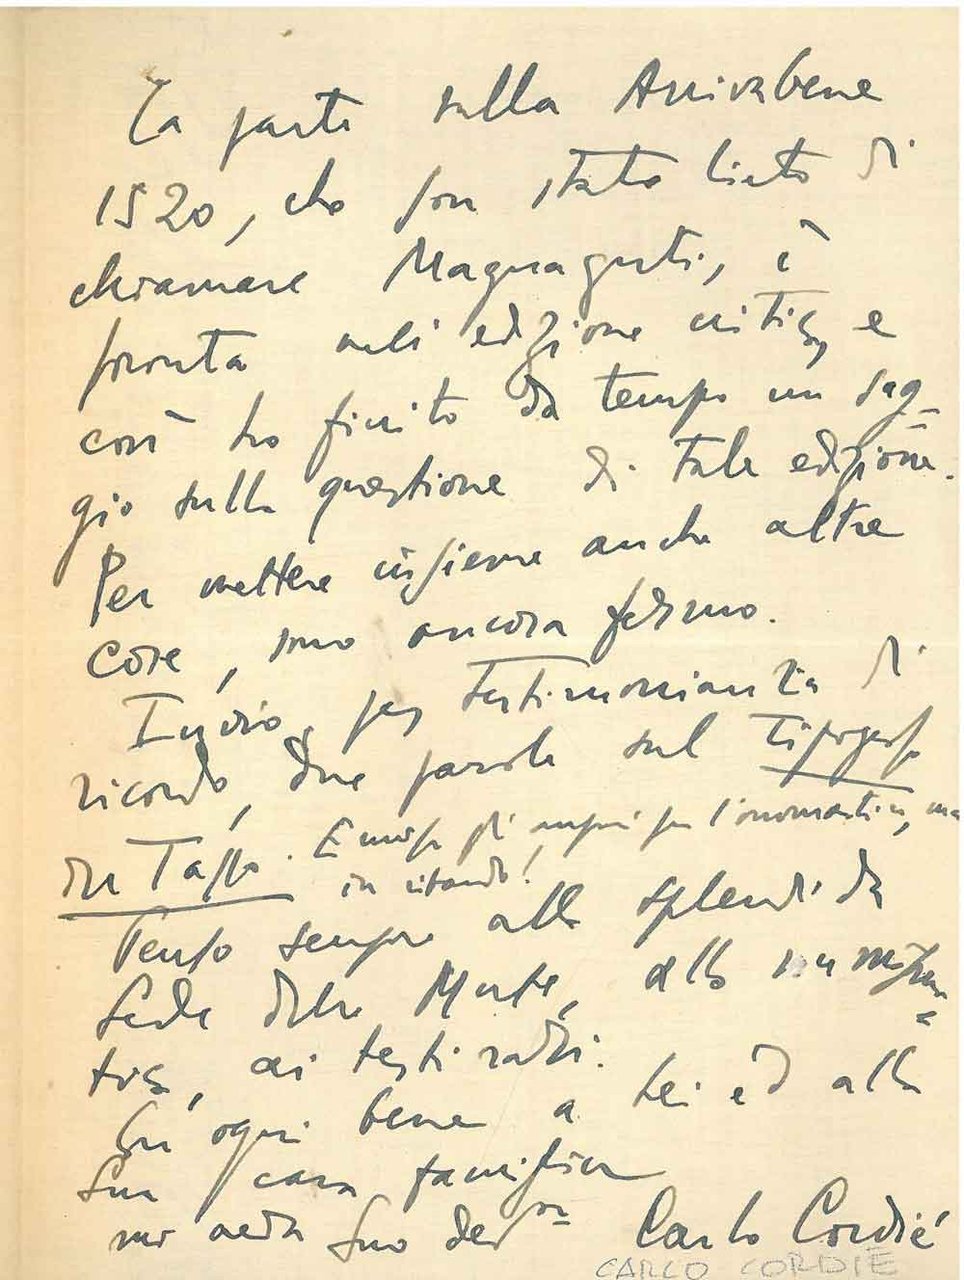 La parte sulla Arrivabene
1520, che son stato lieto di
chiamare Magnaguti, è
pronta nell'edizione critica, e
così ho finito da tempo un sag-
gio sulla questione di tale edizione.
Per mettere insieme anche altre
cose, sono ancora fermo.
Invio, per testimonianza di
ricordo, due parole sul Tipografo
del Tasso. E invio gli auguri per l'onomastico, ma
in ritardo!
Penso sempre alla splendida
Sede delle Muse, alla numisma-
tica, ai testi rari.
Con ogni bene a Lei ed alla
Sua cara famiglia
mi creda Suo dev.mo Carlo Cordié
CARLO CORDIÉ